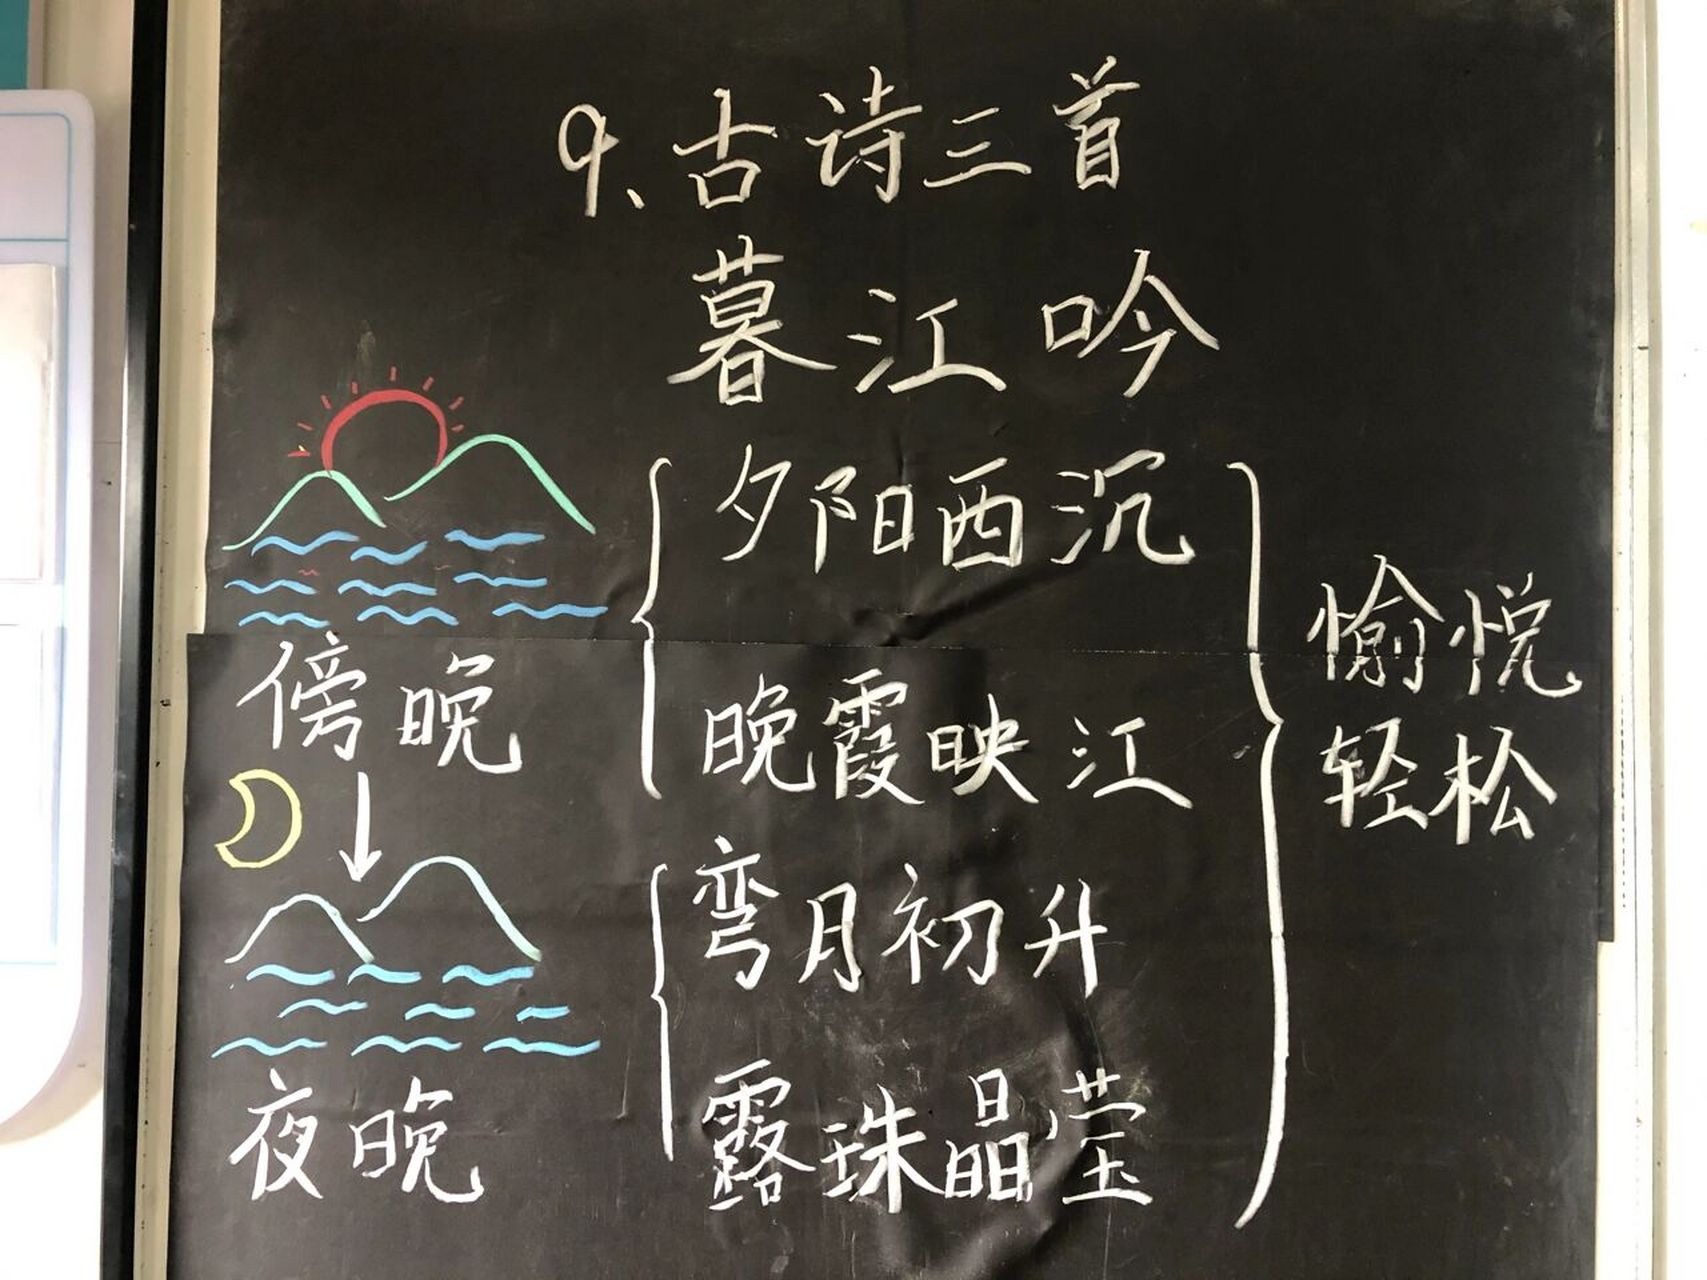 9、古诗三首
暮江吟
夕阳西沉
傍晚
晚霞映江
愉悦
轻松
弯月初升
夜晚
露珠晶莹